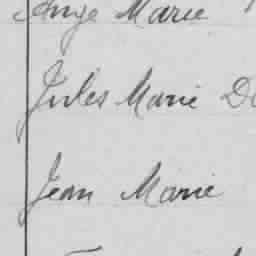 Ange Marie
Jules Marie
Jean Marie